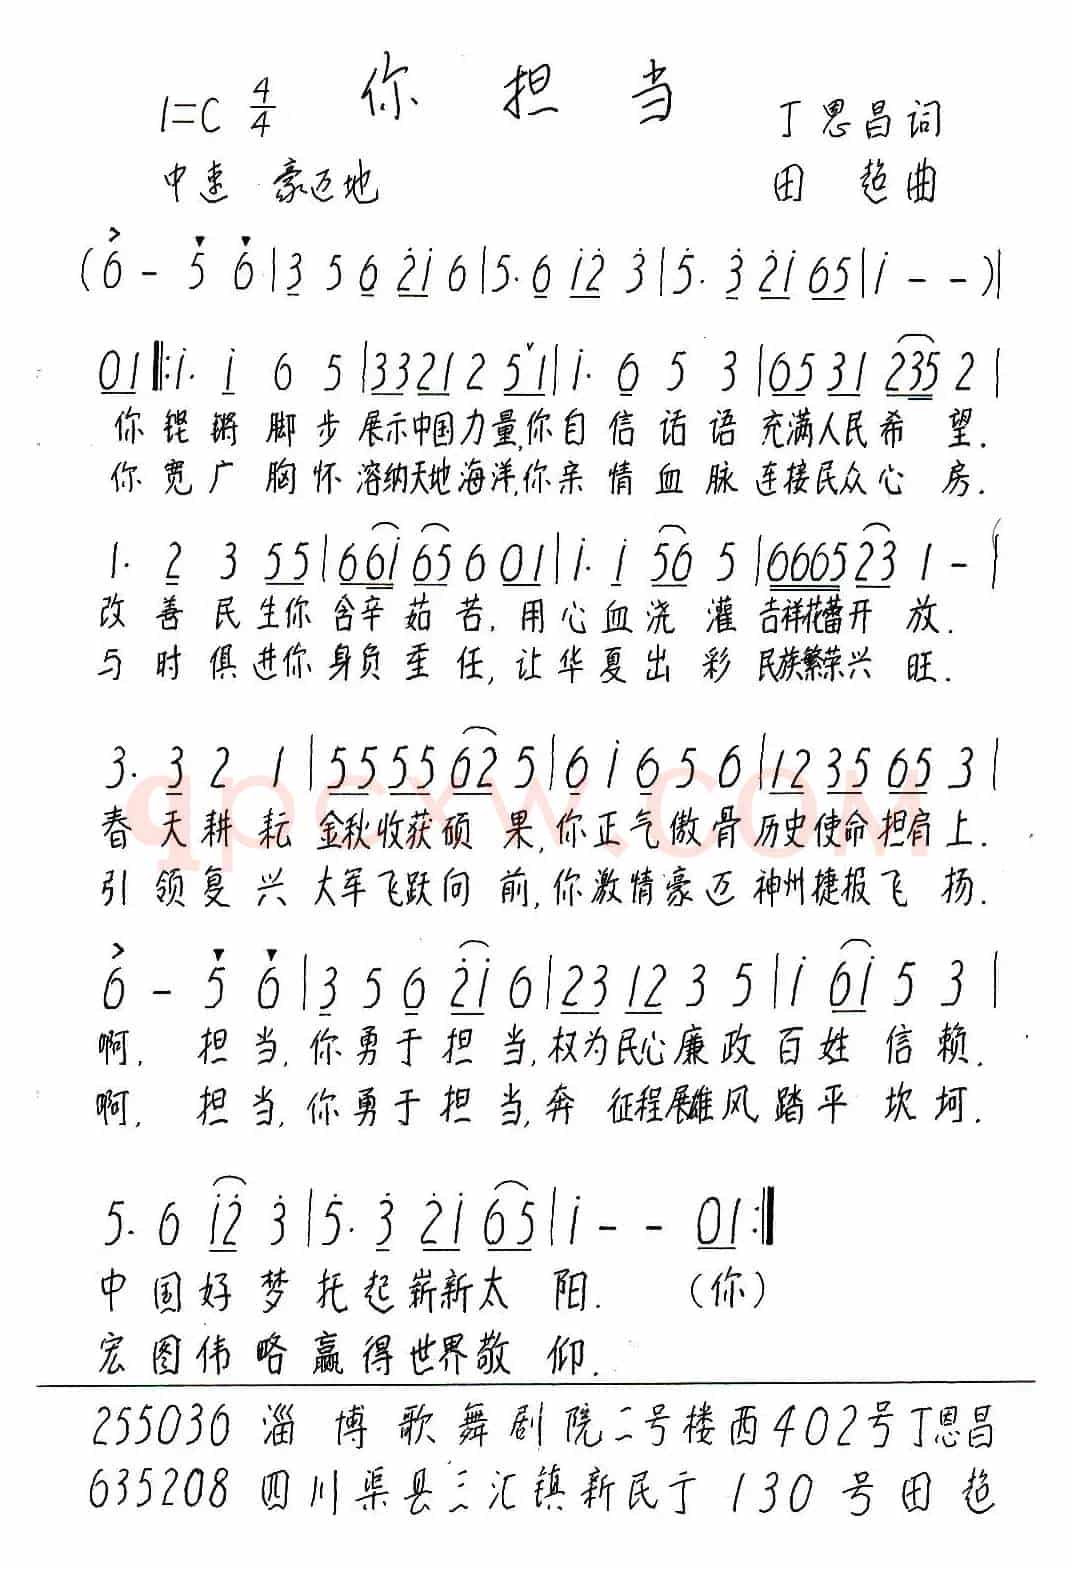 你 担 当
1=C 4/4
丁恩昌词
中速 豪迈地
田 超曲
(6 - 5 6 | 3 5 6 2̇1̇ 6 | 5· 6 1̇2̇ 3̇ | 5̇· 3̇ 2̇1̇ 65 | 1̇ - - )|
01 ‖: 1̇· 1̇ 6 5 | 33 21 2 5 1 | 1̇· 6 5 3 | 65 31 235 2 |
你 铿 锵 脚 步 展示中国力量,你自信话语充满人民希 望.
你 宽 广 胸 怀 溶纳天地海洋,你亲情血脉连接民众心 房.
1· 2 3 55 | 661̇ 65 6 01 | 1̇· 1̇ 56 5 | 6665 23 1 - |
改 善 民 生你 含辛 茹 苦, 用心血浇 灌 吉祥花蕾开 放.
与 时 俱 进你 身负 重 任, 让华夏出 彩 民族繁荣兴 旺.
3· 3 2 1 | 55 55 62 5 | 6 1̇ 6 5 6 | 12 35 65 3 |
qpcxw.COM
春 天 耕 耘 金秋收获硕 果,你正气傲骨历史使命担肩上.
引 领 复 兴 大军飞跃向 前,你激情豪迈神州捷报飞 扬.
6 - 5 6 | 3 5 6 2̇1̇ 6 | 23 12 3 5 | 1̇ 61̇ 5 3 |
啊, 担 当,你勇于担 当,权为民心廉 政 百 姓 信 赖.
啊, 担 当,你勇于担 当,奔 征程展雄风 踏 平 坎 坷.
5· 6 1̇2̇ 3̇ | 5̇· 3̇ 2̇1̇ 65 | 1̇ - - 01 :‖
中 国 好 梦 托 起 崭新太 阳. (你)
宏 图 伟 略 赢 得 世界敬 仰.
255036 淄 博 歌 舞 剧 院二号楼西402号丁恩昌
635208 四川渠县三汇镇新民于130号田超